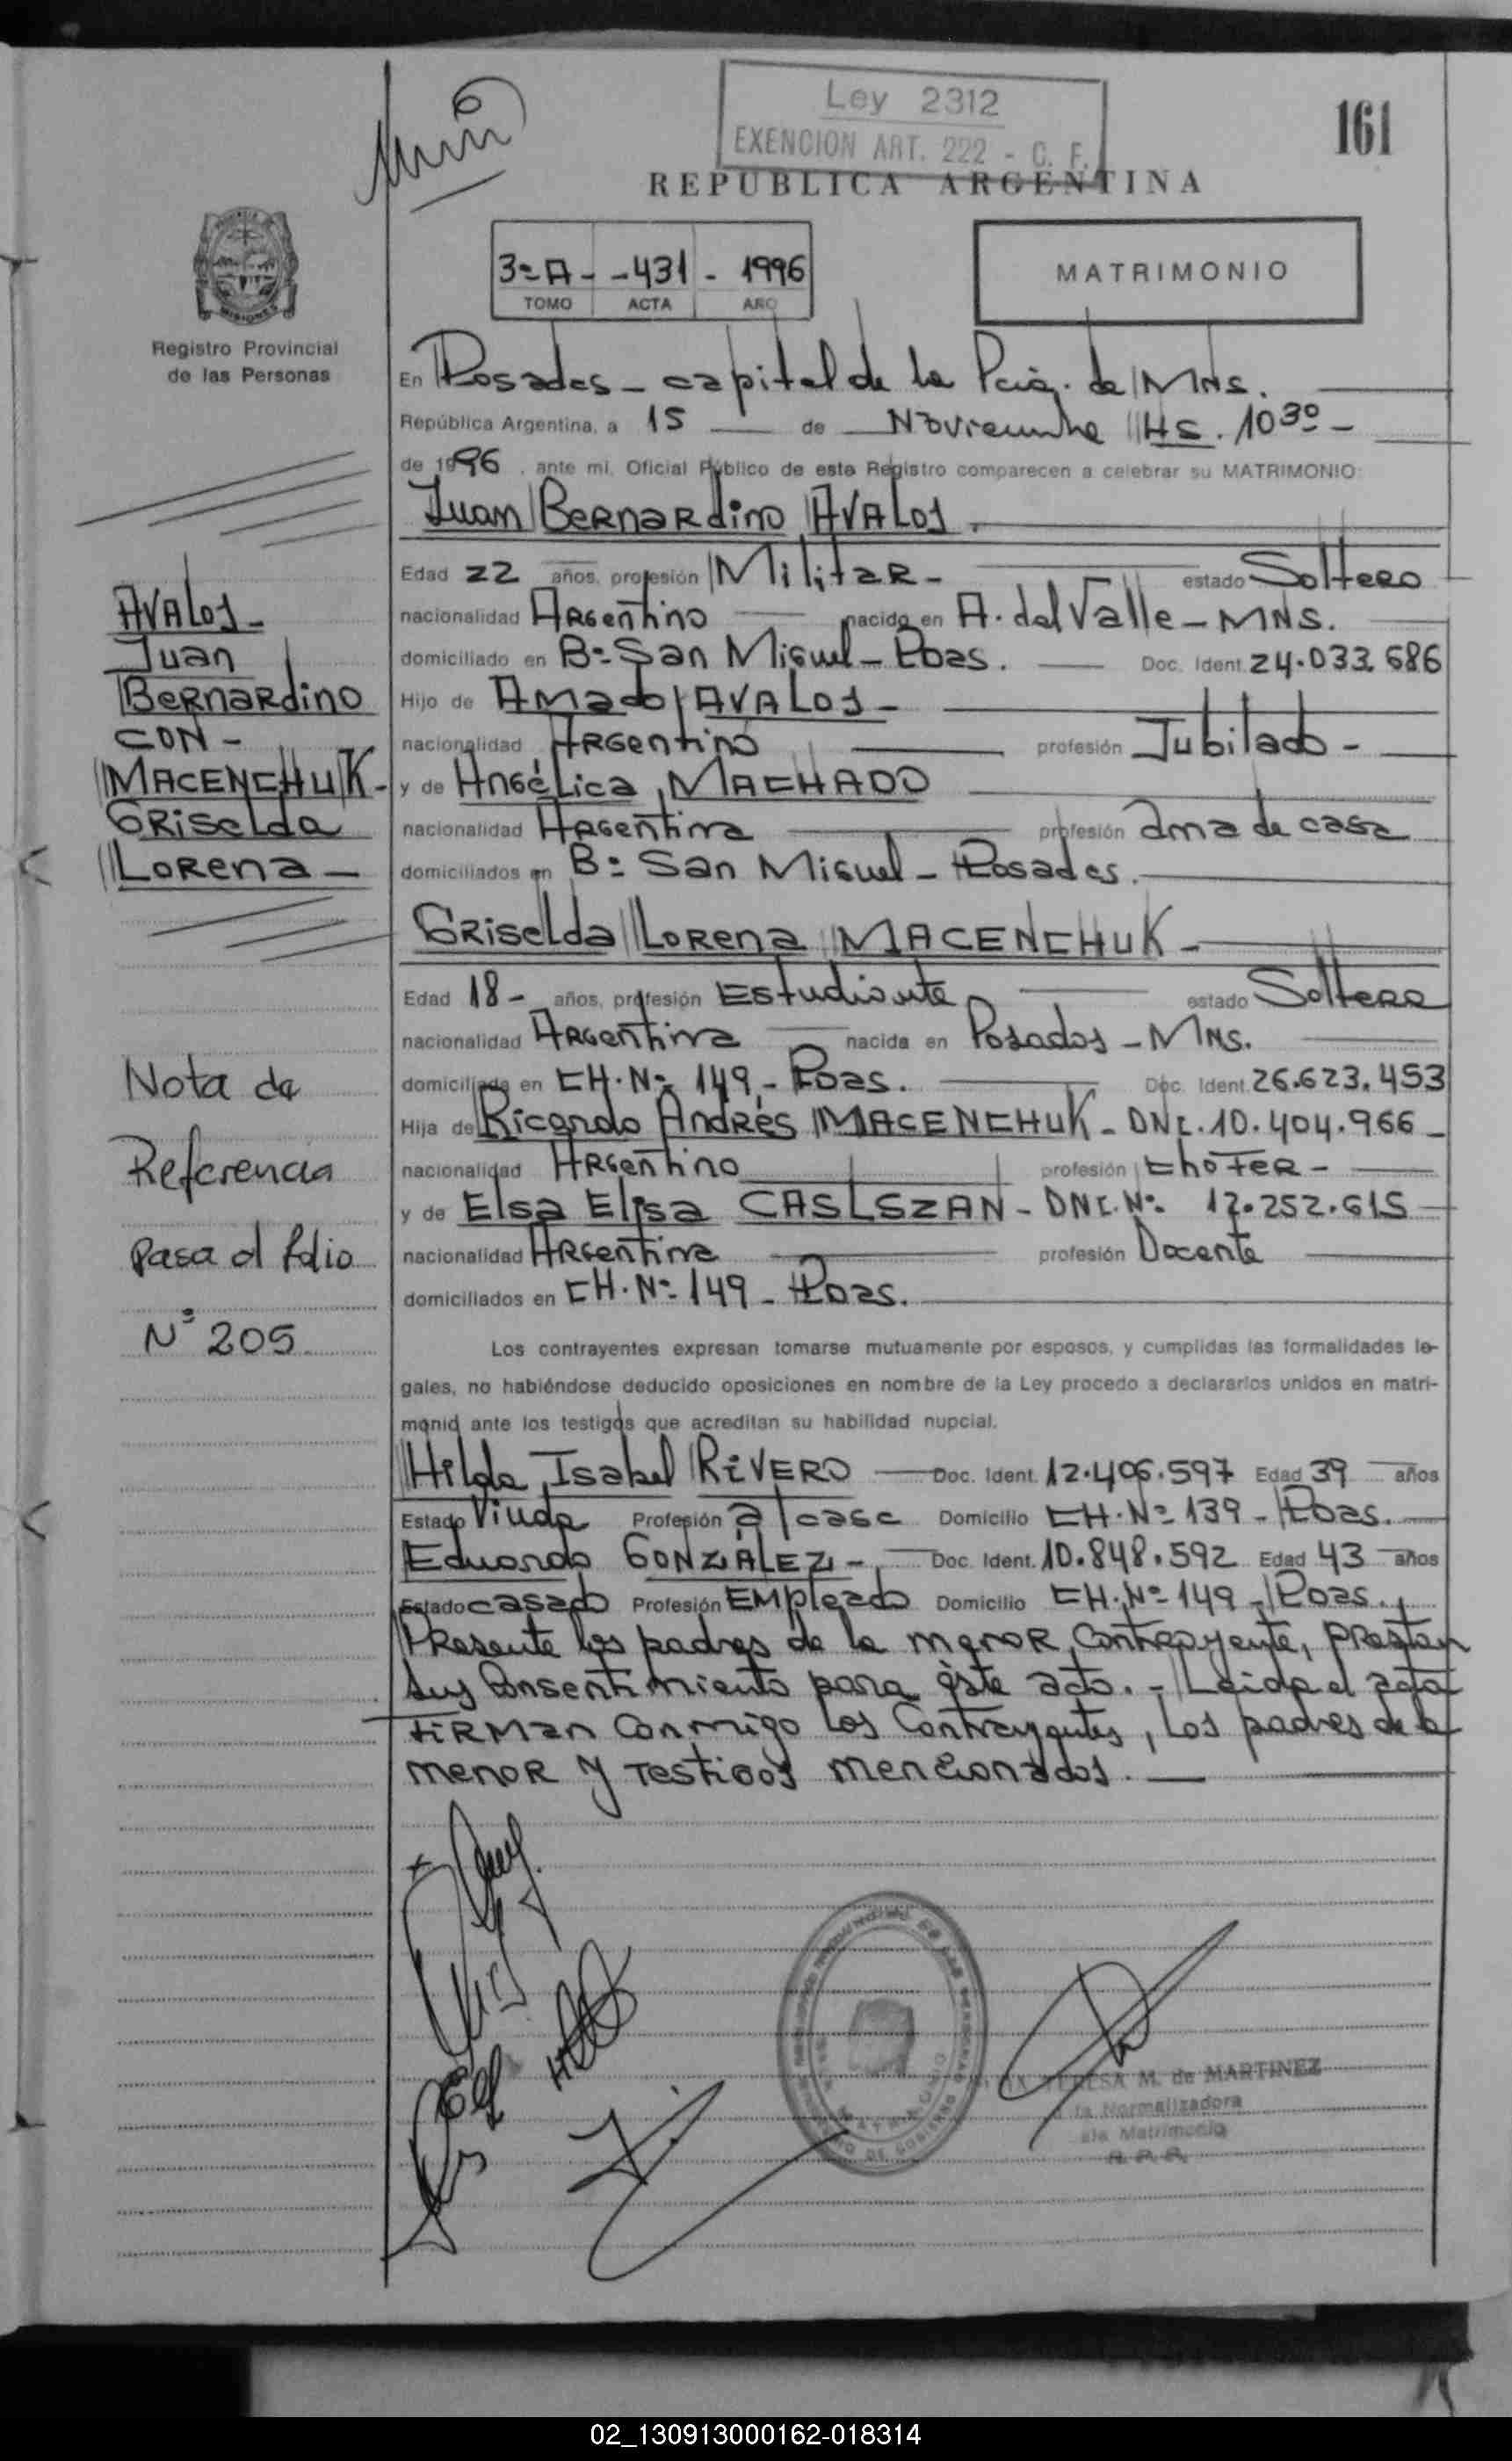 Ley 2312
EXENCION ART. 222 - C. F.
161
REPUBLICA ARGENTINA
3=A - -431 - 1996
TOMO ACTA AÑO
MATRIMONIO
MISIONES
Registro Provincial
de las Personas
En Posadas - capital de la Pcia. de MNS.
República Argentina, a 15 de Noviembre HS. 10 30 -
de 1996, ante mi, Oficial Público de este Registro comparecen a celebrar su MATRIMONIO:
Juan Bernardino AVALOS.
Edad 22 años, profesión Militar - estado Soltero
nacionalidad Argentino nacido en A. del Valle - MNS.
domiciliado en B= San Miguel - Pdas. Doc. Ident. 24.033.686
Hijo de Amado AVALOS -
nacionalidad Argentino profesión Jubilado -
y de Angélica MACHADO
nacionalidad Argentina profesión ama de casa
domiciliados en B= San Miguel - Posadas.
AVALOS -
Juan
Bernardino
CON -
MACENCHUK -
Griselda
Lorena -
Griselda Lorena MACENCHUK -
Edad 18 - años, profesión Estudiante estado Soltera
nacionalidad Argentina nacida en Posadas - MNS.
domiciliada en CH. Nº 149 - Pdas. Doc. Ident. 26.623.453
Hija de Ricardo Andrés MACENCHUK - DNI. 10.404.966 -
nacionalidad Argentino profesión Chofer -
y de Elsa Elisa CASLSZAN - DNI. Nº 12.252.615
nacionalidad Argentina profesión Docente
domiciliados en CH. Nº 149 - Pdas.
Nota de
Referencia
Pasa al folio
Nº 205
Los contrayentes expresan tomarse mutuamente por esposos, y cumplidas las formalidades le-
gales, no habiéndose deducido oposiciones en nombre de la Ley procedo a declararlos unidos en matri-
monio ante los testigos que acreditan su habilidad nupcial.
Hilda Isabel RIVERO Doc. Ident. 12.406.597 Edad 39 años
Estado Viuda Profesión a/casa Domicilio CH. Nº 139 - Pdas.
Eduardo GONZALEZ - Doc. Ident. 10.848.592 Edad 43 años
Estado casado Profesión Empleado Domicilio CH. Nº 149 - Pdas.
Presente los padres de la menor contrayente, prestan
sus consentimiento para éste acto. - Leída el acta
firman conmigo los contrayentes, los padres de la
menor y testigos mencionados.
TERESA M. de MARTINEZ
Normalizadora
Matrimonio
R. P. P.
02_130913000162-018314